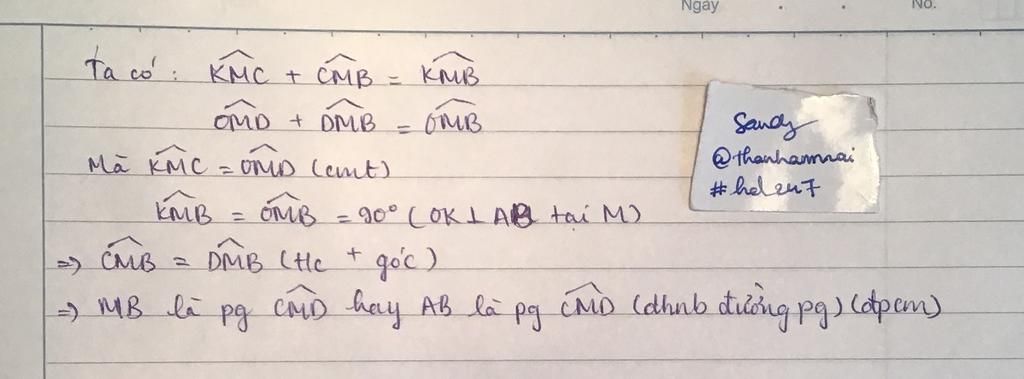 Ngày
No.
Ta có: \widehat{KMC} + \widehat{CMB} = \widehat{KMB}
\widehat{OMD} + \widehat{DMB} = \widehat{OMB}
Mà \widehat{KMC} = \widehat{OMD} (cmt)
\widehat{KMB} = \widehat{OMB} = 90° (OK ⊥ AB tại M)
⇒ \widehat{CMB} = \widehat{DMB} (t/c + góc)
⇒ MB là pg \widehat{CMD} hay AB là pg \widehat{CMD} (dhnb đường pg) (đpcm)
Sandy
@thanhamnai
#hel247